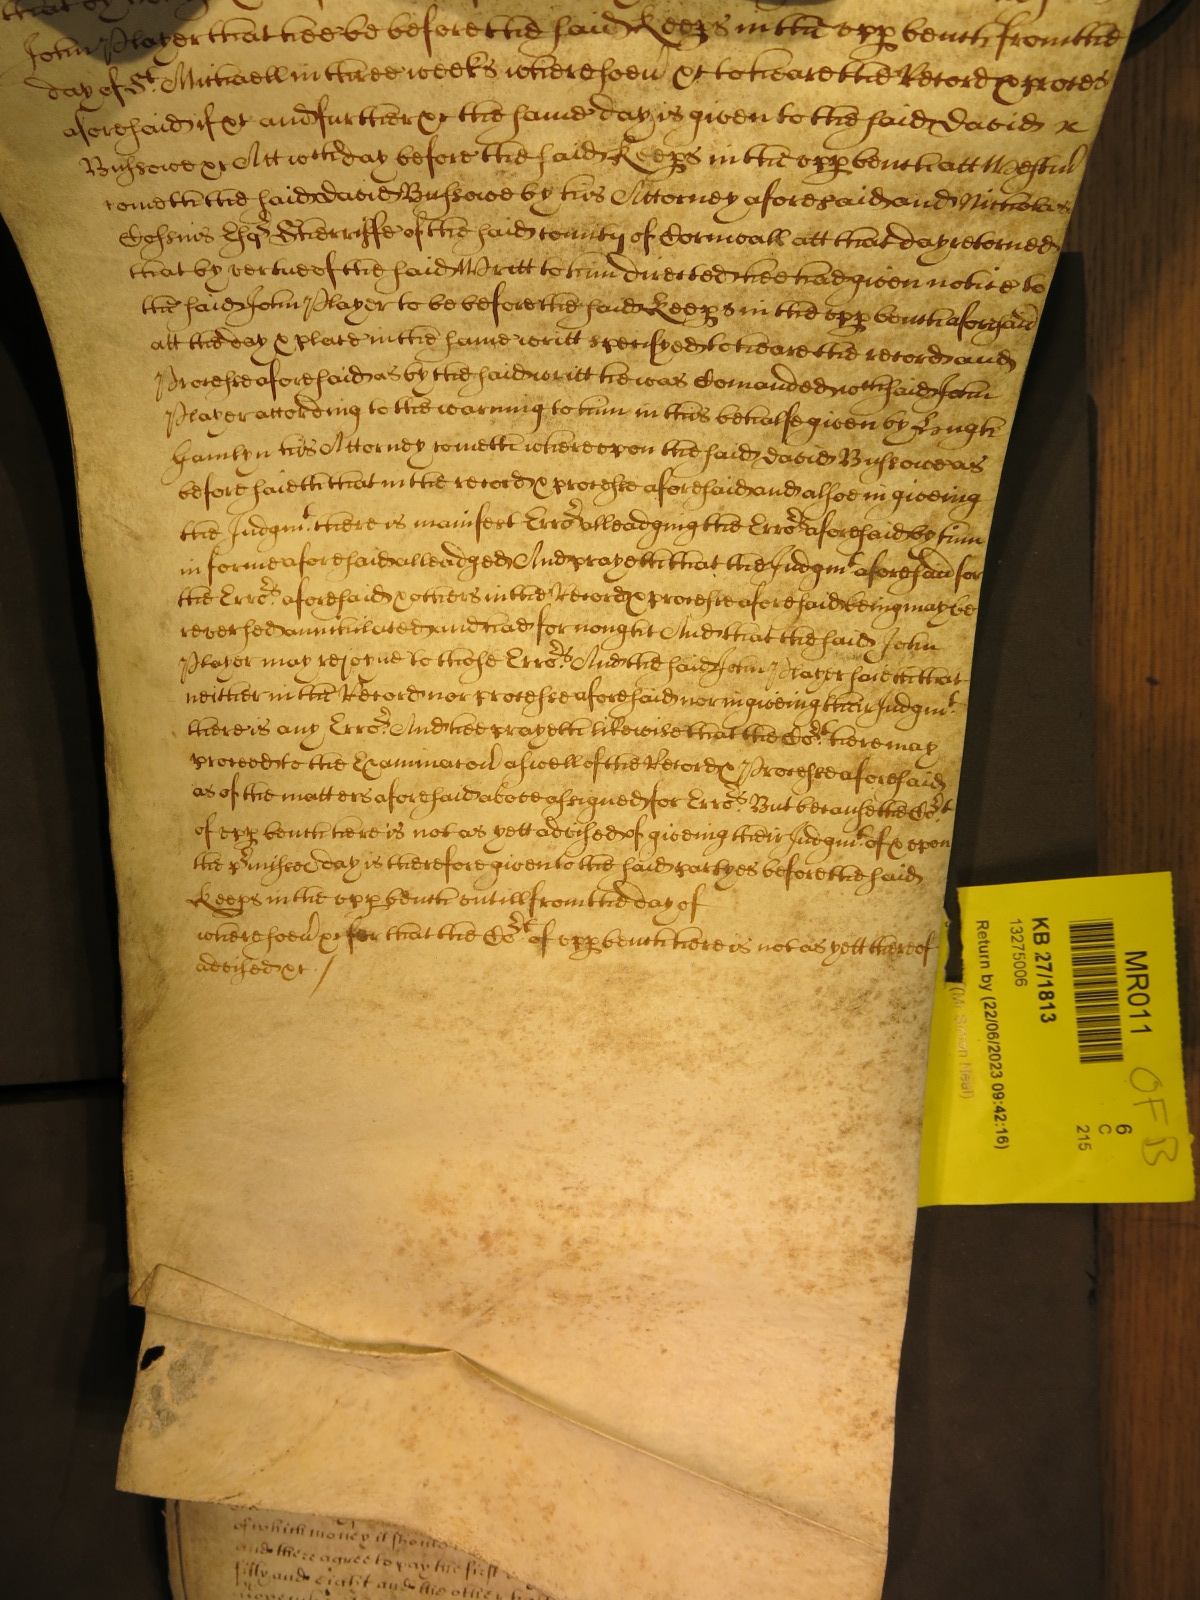 John Player that hee be before the said Keeps in the upp bench from the
day of St. Michaell in three weeks wheresoev &c to heare the Record & proces
aforesaid if &c and further &c the same day is given to the said David
Bussowe &c Att wch day before the said Keeps in the upp bench att Westm
cometh the said David Bussowe by his Attorney aforesaid and Nicholas
Cossins Esqr Sherriffe of the said county of Cornwall att that day retorned
that by vertue of the said Writt to him directed hee had given notice to
the said John Player to be before the said Keeps in the upp bench aforesaid
att the day & place in the same writt specifyed to heare the record and
Processe aforesaid as by the said writt he was Comanded wch said John
Player according to the warning to him in this behalfe given by Hugh
Hamlyn his Attorney cometh whereupon the said David Bussowe as
before saieth that in the record & processe aforesaid and alsoe in giveing
the Judgmt. there is manifest Erro:r alleadging the Erro:rs aforesaid by him
in forme aforesaid alleadged And prayeth that the Judgmt aforesaid for
the Erro:rs aforesaid & others in the Record & processe aforesaid being may be
reversed annihilated and had for nought And that the said John
Player may rejoyne to those Erro:rs And the said John Player saieth that
neither in the Record nor processe aforesaid nor in giveing their Judgmt.
there is any Erro:r. And hee prayeth likewise that the Co:rt here may
proceed to the Examinacon aswell of the Record & Processe aforesaid
as of the matters aforesaid above assigned for Erro:rs But because the Co:rt
of upp bench here is not as yett advised of giveing their Judgmt. of & upon
the p:rmisses day is therefore given to the said partyes before the said
Keeps in the upp bench untill from the day of
wheresoev &c for that the Co:rt of upp bench here is not as yett thereof
advised &c /
MR011
OF B
KB 27/1813
13275006
6
C
215
Return by (22/06/2023 09:42:16)
of which money it should
and there agree to pay the first
fifty and eight and the other